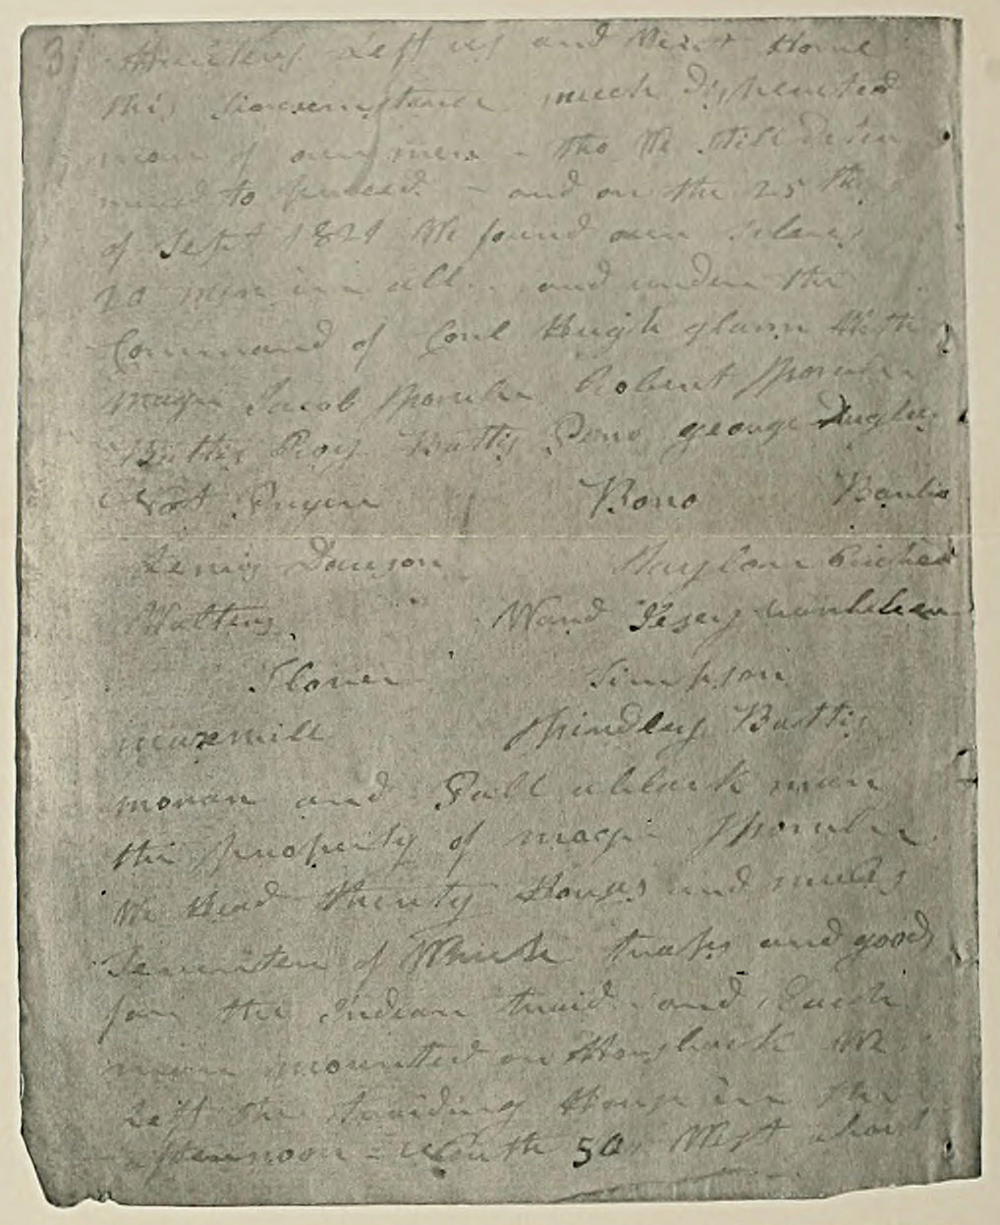 3
Hunters left us and Went Home
this Sircumstance much dishearted
maney of our men - tho We Still deter
mined to proceed - and on the 25th
of Sept 1821 We found our Selves
20 men in all and under the
Command of Conl Hugh glann With
Major Jacob fowler Robert fowler
Battis Roy Battis Peno george Duglas
Nat Pryer Bono Barbo
Lewis Dawson Taylor Richard
Walters Ward Jesey vanbeber
Slover Simpson
maxwill Findley Battis
moran and Pall a black man
the property of major fowler
We Head thirty Horses and mules
Seventen of Which traps and goods
for the Indean traid and Each
man mounted on Horsback We
Left the traiding House in the
afternoon - South 50 West about